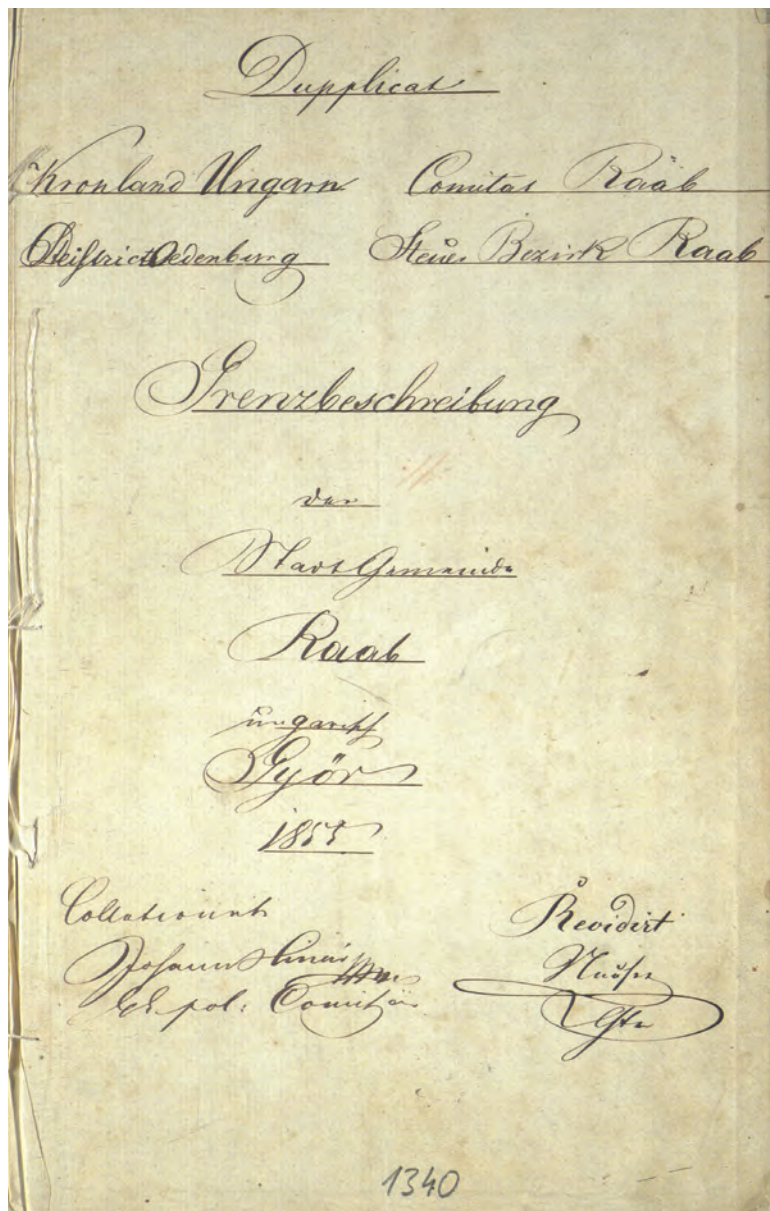 Dupplicat
Kronland Ungarn Comitat Raab
District Oedenburg Steuer Bezirk Raab
Grenzbeschreibung
der
Stadt Gemeinde
Raab
ungarisch
Győr
Collationirt
Revidirt
Johann
pol:
1340